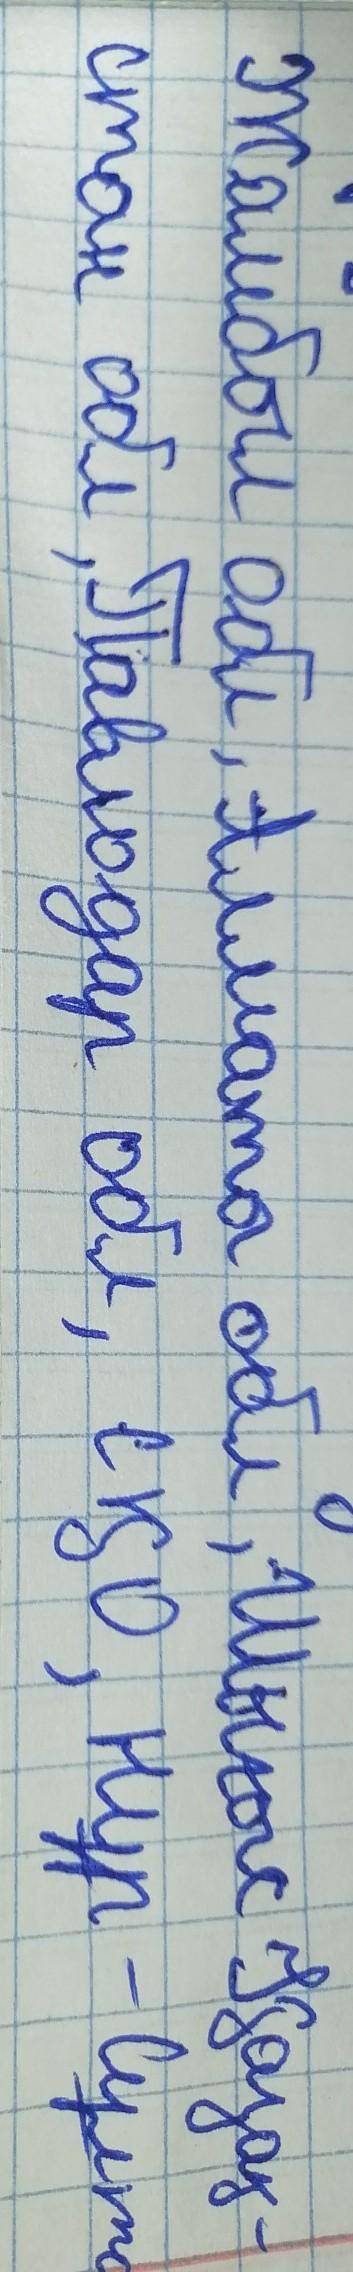 Жамбыл обл, Алматы обл, Шығыс Қазақ-
стан обл, Павлодар обл, СҚО, Нұр-Сұлта